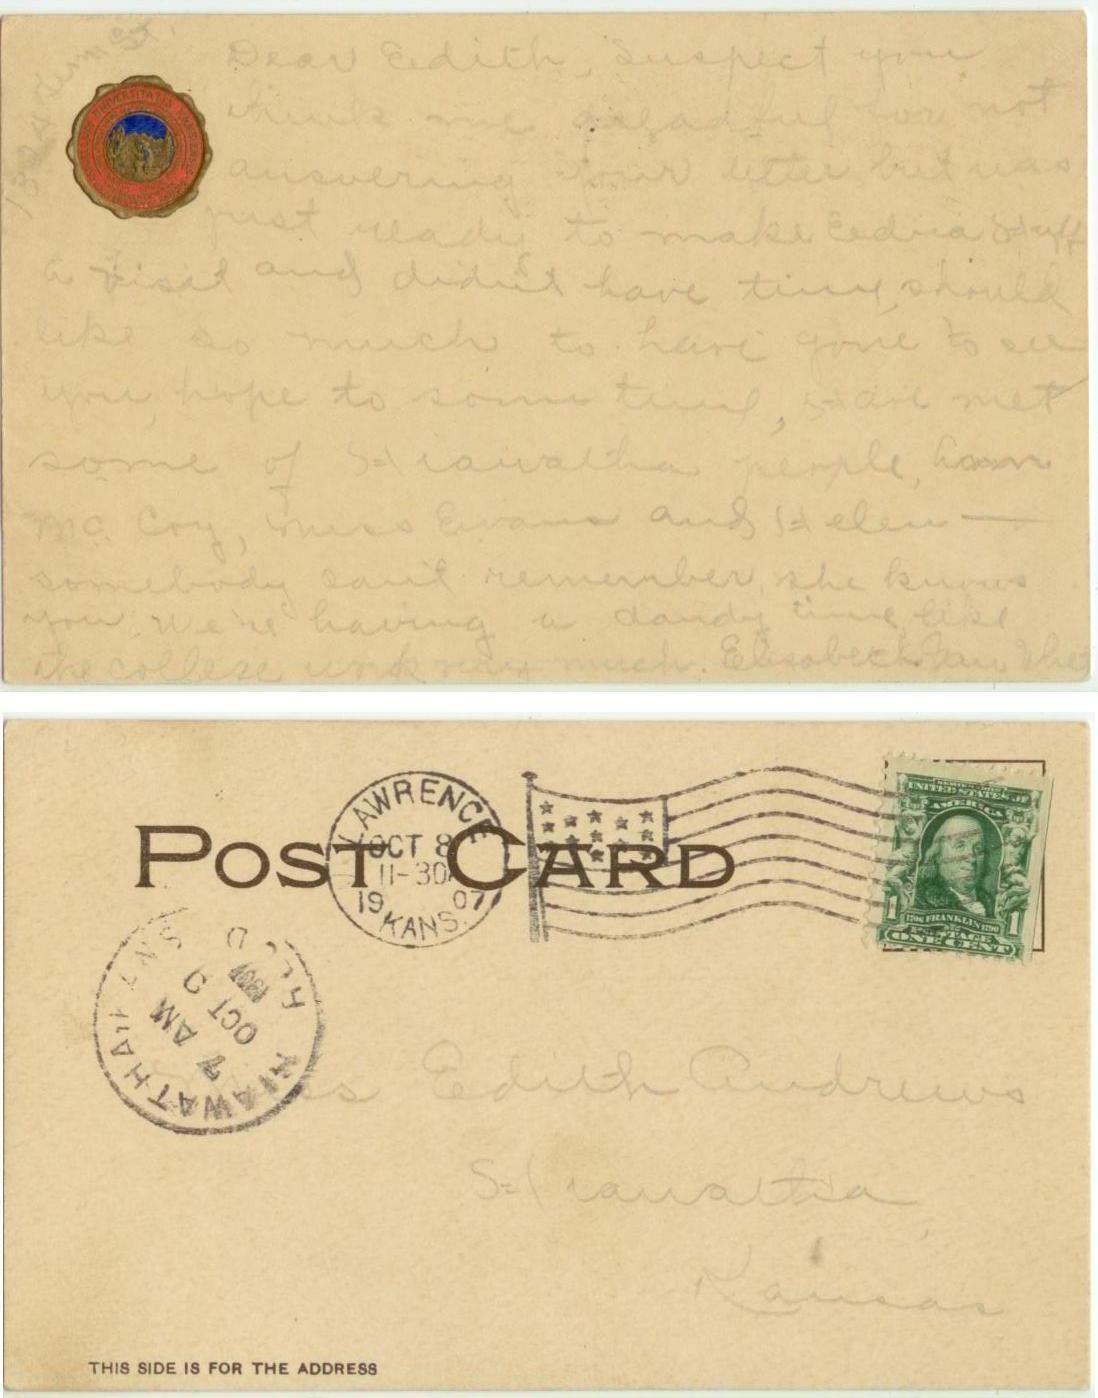 Dear Edith, Suspect you
think me dreadful for not
answering your letter but was
just ready to make Edna Huff
a visit and didn't have time, should
like so much to have gone to see
you, hope to some time, Have met
some of Hiawatha people,
Mc Coy, Miss Evans and Helen —
somebody can't remember, she knows
you. We're having a dandy time, like
the college work very much. Elisabeth
POST CARD
LAWRENCE
OCT 8
11-30A
1907
KANS.
SERIES 1902
UNITED STATES OF
AMERICA
1706 FRANKLIN 1790
1 POSTAGE 1
ONE CENT
HIAWATHA KANS
7 AM
OCT 9
1907
REC'D
Miss Edith Andrews
Hiawatha
Kansas
THIS SIDE IS FOR THE ADDRESS